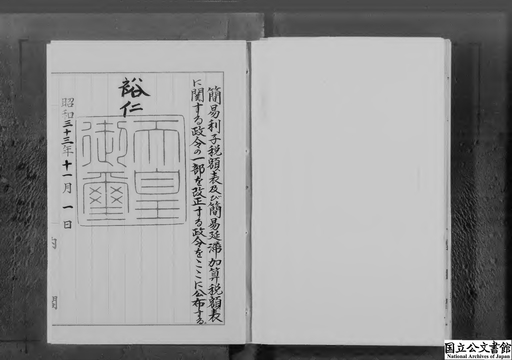 簡易利子税額表及び簡易延滞加算税額表
に関する政令の一部を改正する政令をここに公布する。
裕仁
天皇
御璽
昭和三十三年十一月一日
国立公文書館
National Archives of Japan